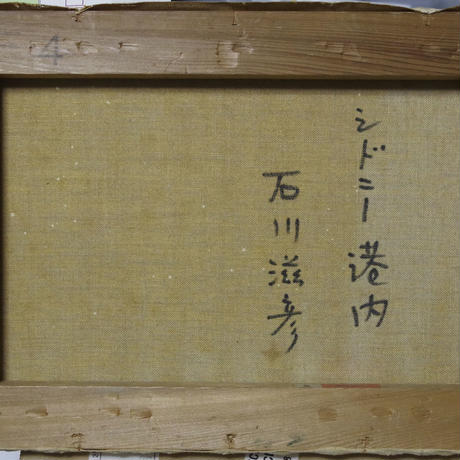 シドニー港内
石川滋彦
4